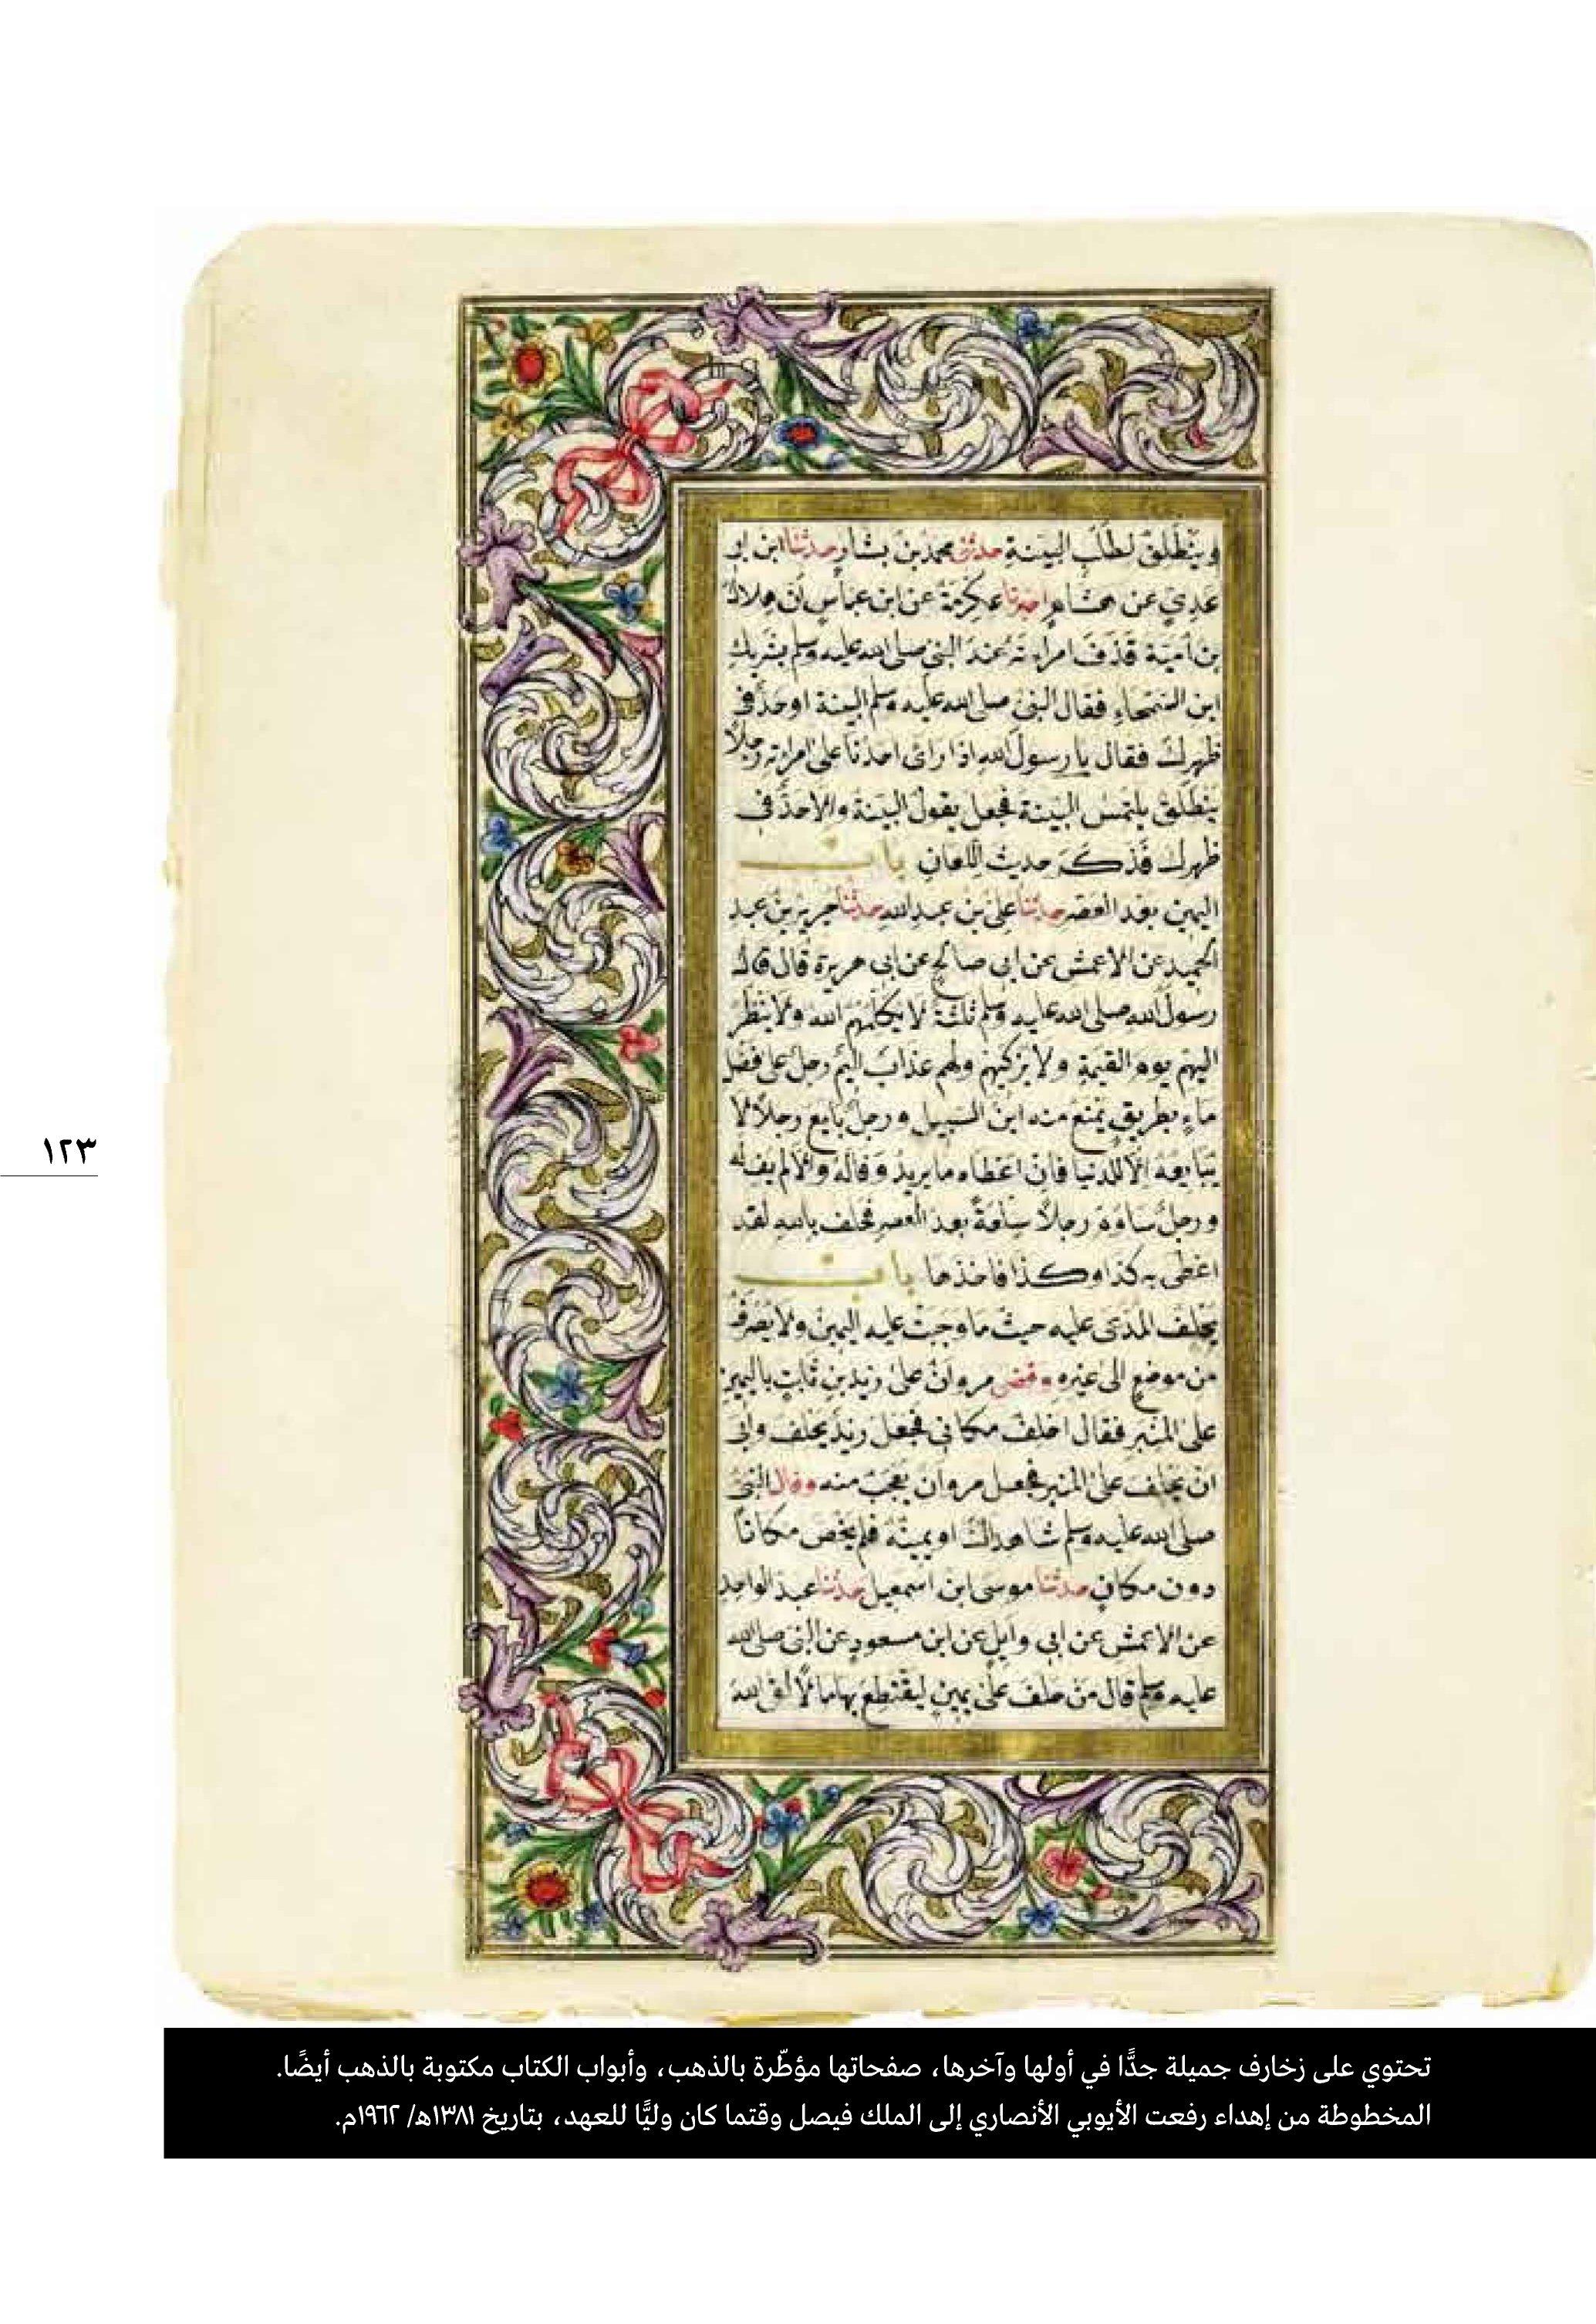 وينطلق لطلب البينة حدثني محمد بن بشار حدثنا ابن ابي
عدي عن هشام اخبرنا عكرمة عن ابن عباس ان هلال
بن امية قذف امراته عند النبي صلى الله عليه وسلم بشريك
ابن السحماء فقال النبي صلى الله عليه وسلم البينة او حد في
ظهرك فقال يا رسول الله اذا راى احدنا على امراته رجلاً
ينطلق يلتمس البينة فجعل يقول البينة والا حد في
ظهرك فذكر حديث اللعان باب
اليمين بعد العصر حدثنا علي بن عبد الله حدثنا جرير بن عبد
الحميد عن الاعمش عن ابي صالح عن ابي هريرة قال قال
رسول الله صلى الله عليه وسلم ثلثة لا يكلمهم الله ولا ينظر
اليهم يوم القيمة ولا يزكيهم ولهم عذاب اليم رجل على فضل
ماء بطريق يمنع منه ابن السبيل ورجل بايع رجلاً لا
يبايعه الا للدنيا فان اعطاه ما يريد وفى له والا لم يف له
ورجل ساوم رجلاً سلعة بعد العصر فحلف بالله لقد
اعطى به كذا وكذا فاخذها باب
يحلف المدعى عليه حيث ما وجبت عليه اليمين ولا يصرف
من موضع الى غيره وقضى مروان على زيد بن ثابت باليمين
على المنبر فقال احلف مكاني فجعل زيد يحلف وابى
ان يحلف على المنبر فجعل مروان يعجب منه وقال النبي
صلى الله عليه وسلم شاهداك او يمينه فلم يخص مكاناً
دون مكان حدثنا موسى ابن اسمعيل حدثنا عبد الواحد
عن الاعمش عن ابي وايل عن ابن مسعود عن النبي صلى الله
عليه وسلم قال من حلف على يمين ليقتطع بها مالاً لقى الله
١٢٣
تحتوي على زخارف جميلة جدًّا في أولها وآخرها، صفحاتها مؤطّرة بالذهب، وأبواب الكتاب مكتوبة بالذهب أيضًا.
المخطوطة من إهداء رفعت الأيوبي الأنصاري إلى الملك فيصل وقتما كان وليًّا للعهد، بتاريخ ١٣٨١هـ/ ١٩٦٢م.